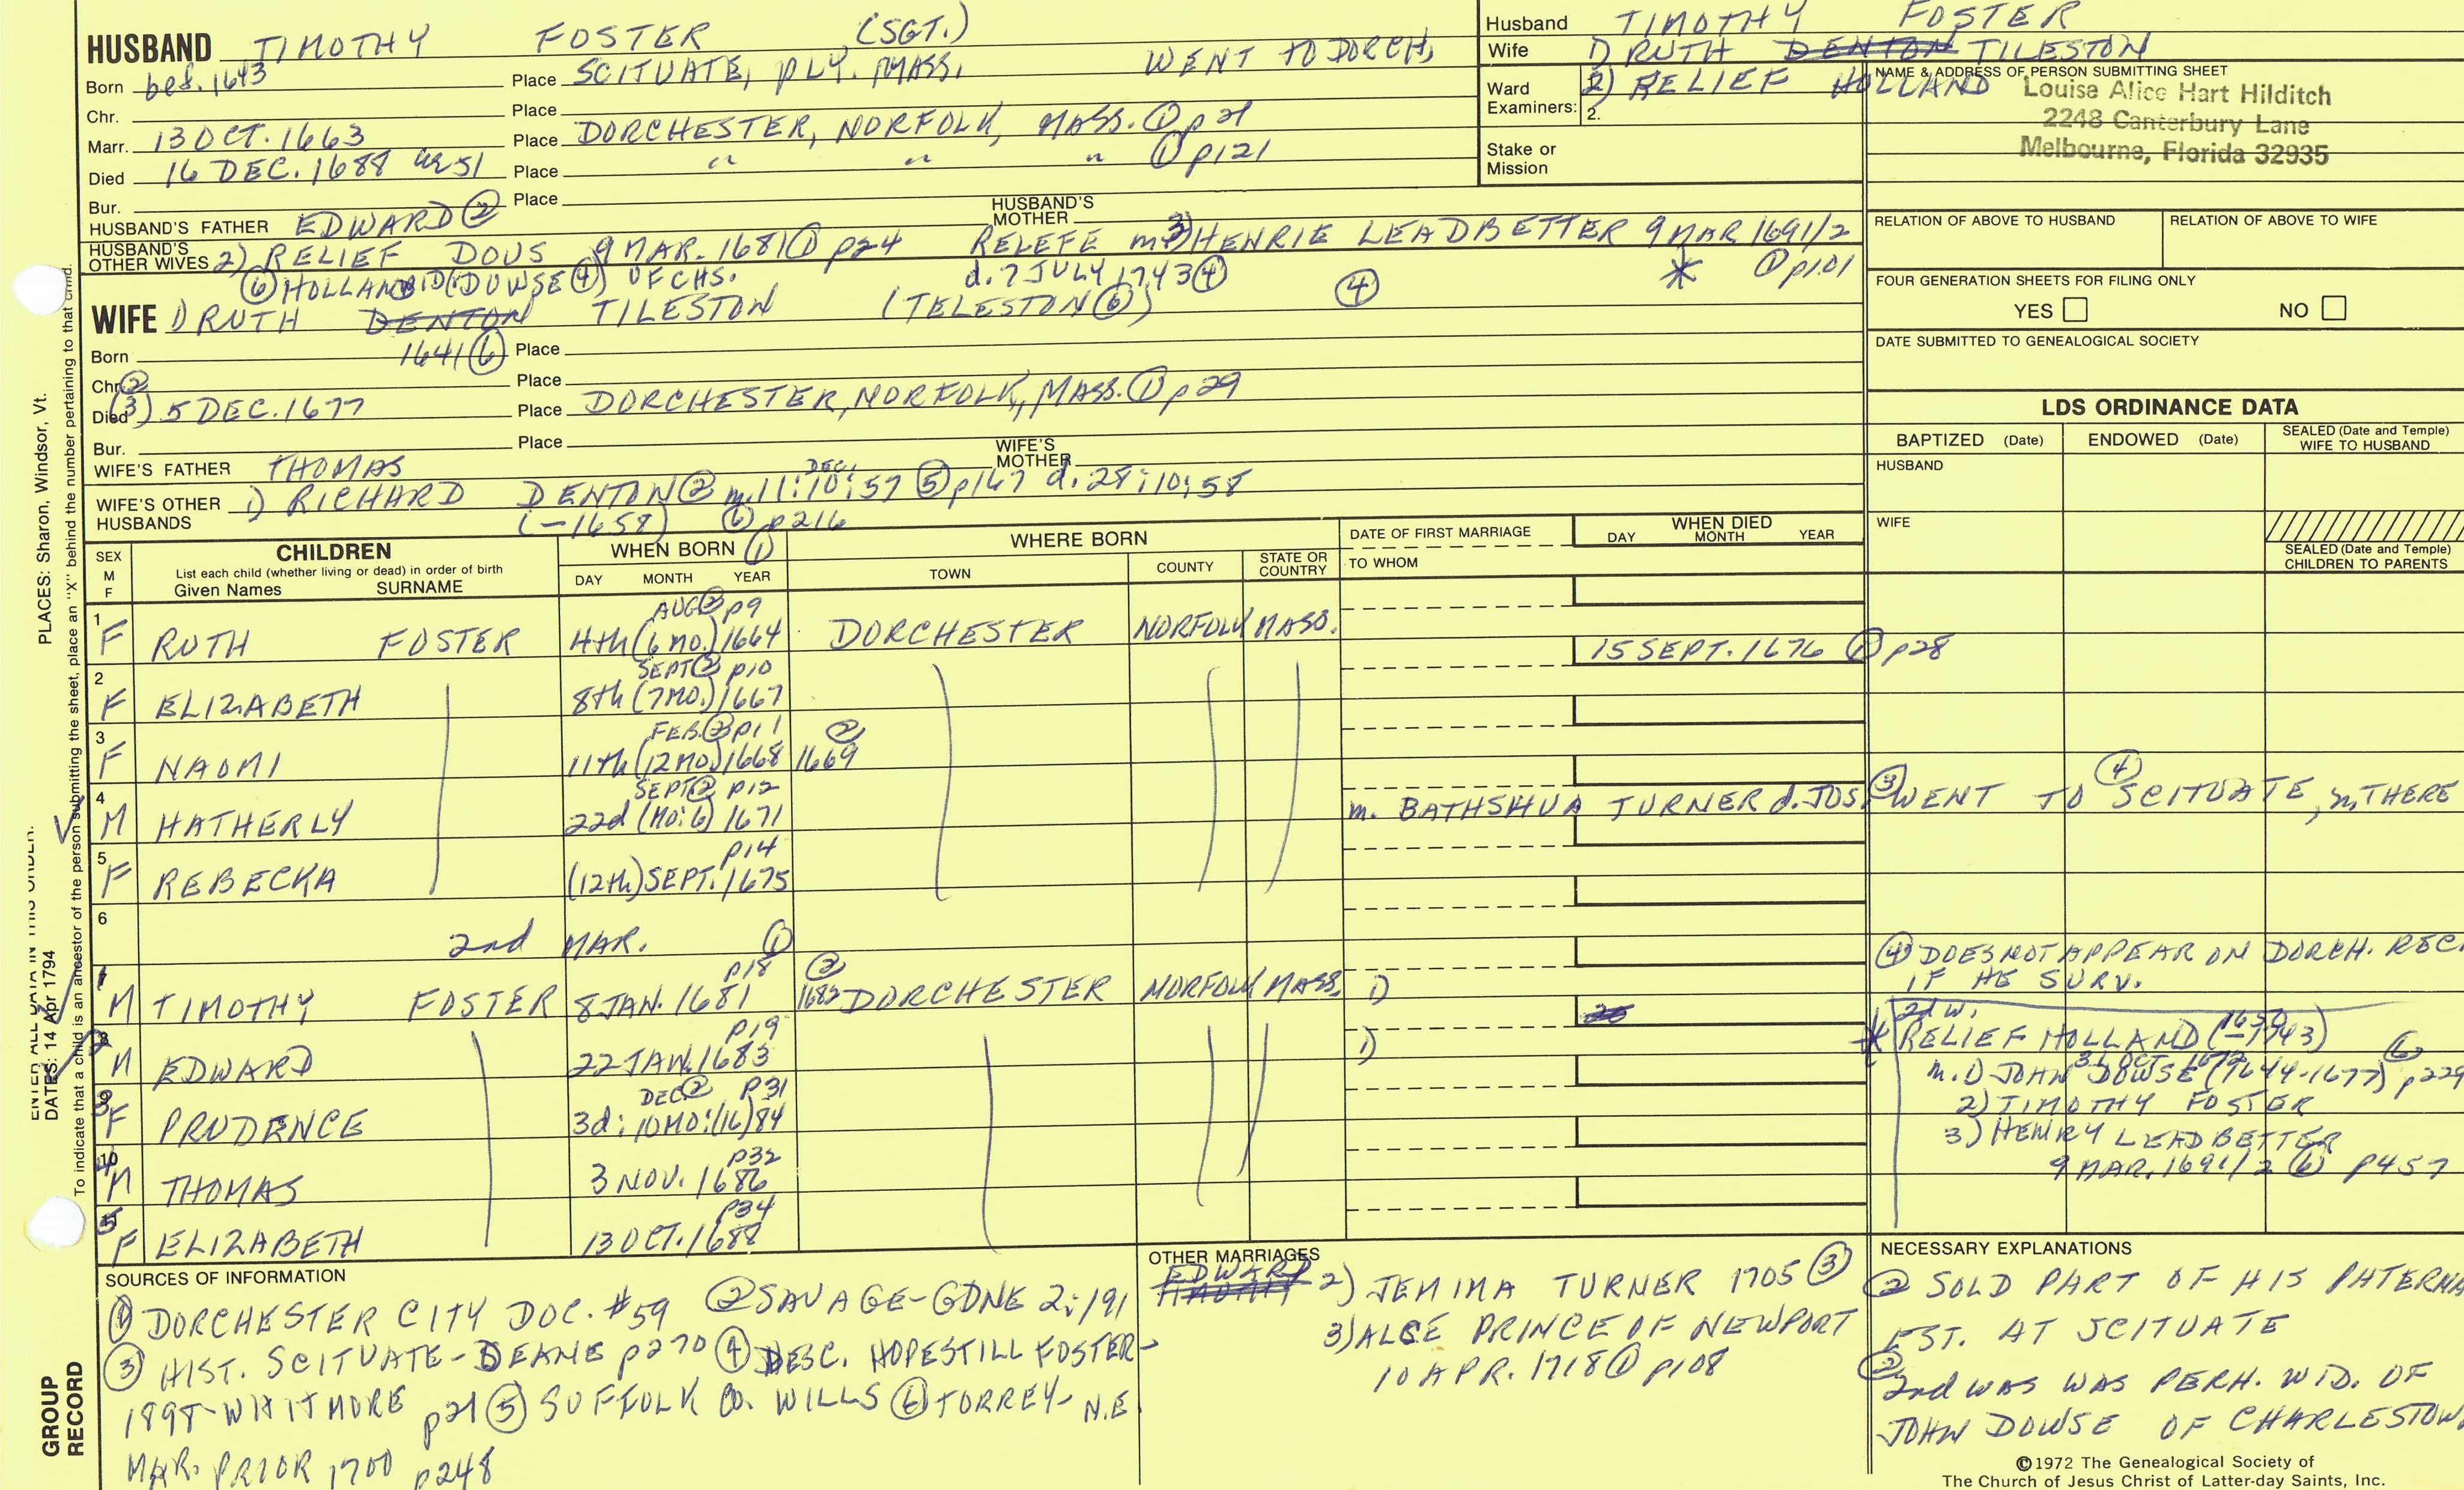 HUSBAND TIMOTHY FOSTER (SGT.)
Born bef. 1643 Place SCITUATE, PLY. MASS. WENT TO DORCH,
Chr. Place
Marr. 13 OCT. 1663 Place DORCHESTER, NORFOLK, MASS. ① p21
Died 16 DEC. 1688 ae 51 Place " " " ① p121
Bur. Place
HUSBAND'S FATHER EDWARD ② HUSBAND'S MOTHER
HUSBAND'S OTHER WIVES 2) RELIEF DOUS 9 MAR. 1681 ① p24 RELEFE m 3) HENRIE LEADBETTER 9 MAR 1691/2
⑥ HOLLAND (DOWSE ④) OF CHS. d. 7 JULY 1743 ④ * ① p101
WIFE 1) RUTH DENTON TILESTON (TELESTON ⑥) ④
Born 1641 ⑥ Place
Chr. ② Place
Died (3) 5 DEC. 1677 Place DORCHESTER, NORFOLK, MASS. ① p29
Bur. Place
WIFE'S FATHER THOMAS WIFE'S MOTHER
DEC.
WIFE'S OTHER HUSBANDS 1) RICHARD DENTON ② m. 11:10:57 ⑤ p167 d. 28:10:58
(-1658) ⑥ p216
Husband TIMOTHY FOSTER
Wife 1) RUTH DENTON TILESTON
Ward Examiners: 1. 2) RELIEF HOLLAND
2.
Stake or Mission
NAME & ADDRESS OF PERSON SUBMITTING SHEET
Louise Alice Hart Hilditch
2248 Canterbury Lane
Melbourne, Florida 32935
RELATION OF ABOVE TO HUSBAND RELATION OF ABOVE TO WIFE
FOUR GENERATION SHEETS FOR FILING ONLY
YES NO
DATE SUBMITTED TO GENEALOGICAL SOCIETY
LDS ORDINANCE DATA
BAPTIZED (Date) ENDOWED (Date) SEALED (Date and Temple) WIFE TO HUSBAND
HUSBAND
WIFE
SEALED (Date and Temple) CHILDREN TO PARENTS
SEX M F
CHILDREN
List each child (whether living or dead) in order of birth
Given Names SURNAME
WHEN BORN ①
DAY MONTH YEAR
WHERE BORN
TOWN COUNTY STATE OR COUNTRY
DATE OF FIRST MARRIAGE
TO WHOM
WHEN DIED
DAY MONTH YEAR
AUG ② p9
1 F RUTH FOSTER 4th (6 MO.) 1664 DORCHESTER NORFOLK MASS.
15 SEPT. 1676 ① p28
SEPT ② p10
2 F ELIZABETH 8th (7 MO.) 1667
FEB. ② p11 ②
3 F NAOMI 11th (12 MO.) 1668 1669
SEPT ② p12
4 M HATHERLY 22d (MO: 6) 1671 m. BATHSHUA TURNER d. JOS. ③ WENT TO ④ SCITUATE, m, THERE
p14
5 F REBECKA (12th) SEPT. 1675
6 2nd MAR. ①
p18 ②
7 M TIMOTHY FOSTER 8 JAN. 1681 1682 DORCHESTER NORFOLK MASS. 1)
p19
2 M EDWARD 22 JAN. 1683 1)
DEC ② p31
9 3 F PRUDENCE 3d: 10 MO: (16)84
p32
10 4 M THOMAS 3 NOV. 1686
p34
5 F ELIZABETH 13 OCT. 1688
④ DOES NOT APPEAR ON DORCH. REC.
IF HE SURV.
2d w.
* RELIEF HOLLAND (1650-1743)
31 OCT. 1672
m. 1) JOHN DOWSE (1644-1677) ⑥ p229
2) TIMOTHY FOSTER
3) HENRY LEADBETTER
9 MAR. 1691/2 ⑥ p457
SOURCES OF INFORMATION
① DORCHESTER CITY DOC. #59 ② SAVAGE-GDNE 2:191
③ HIST. SCITUATE-DEANE p270 ④ DESC. HOPESTILL FOSTER-
1898-WHITMORE p21 ⑤ SUFFOLK CO. WILLS ⑥ TORREY-N.E.
MAR. PRIOR 1700 p248
OTHER MARRIAGES
EDWARD 2) JEMIMA TURNER 1705 ③
3) ALCE PRINCE OF NEWPORT
10 APR. 1718 ① p108
NECESSARY EXPLANATIONS
② SOLD PART OF HIS PATERNA
EST. AT SCITUATE
②
2nd WAS WAS PERH. WID. OF
JOHN DOWSE OF CHARLESTOW
©1972 The Genealogical Society of
The Church of Jesus Christ of Latter-day Saints, Inc.
PLACES: Sharon, Windsor, Vt.
To indicate that a child is an ancestor of the person submitting the sheet, place an "X" behind the number pertaining to that child.
ENTER ALL DATA IN THIS ORDER:
DATES: 14 Apr 1794
GROUP RECORD